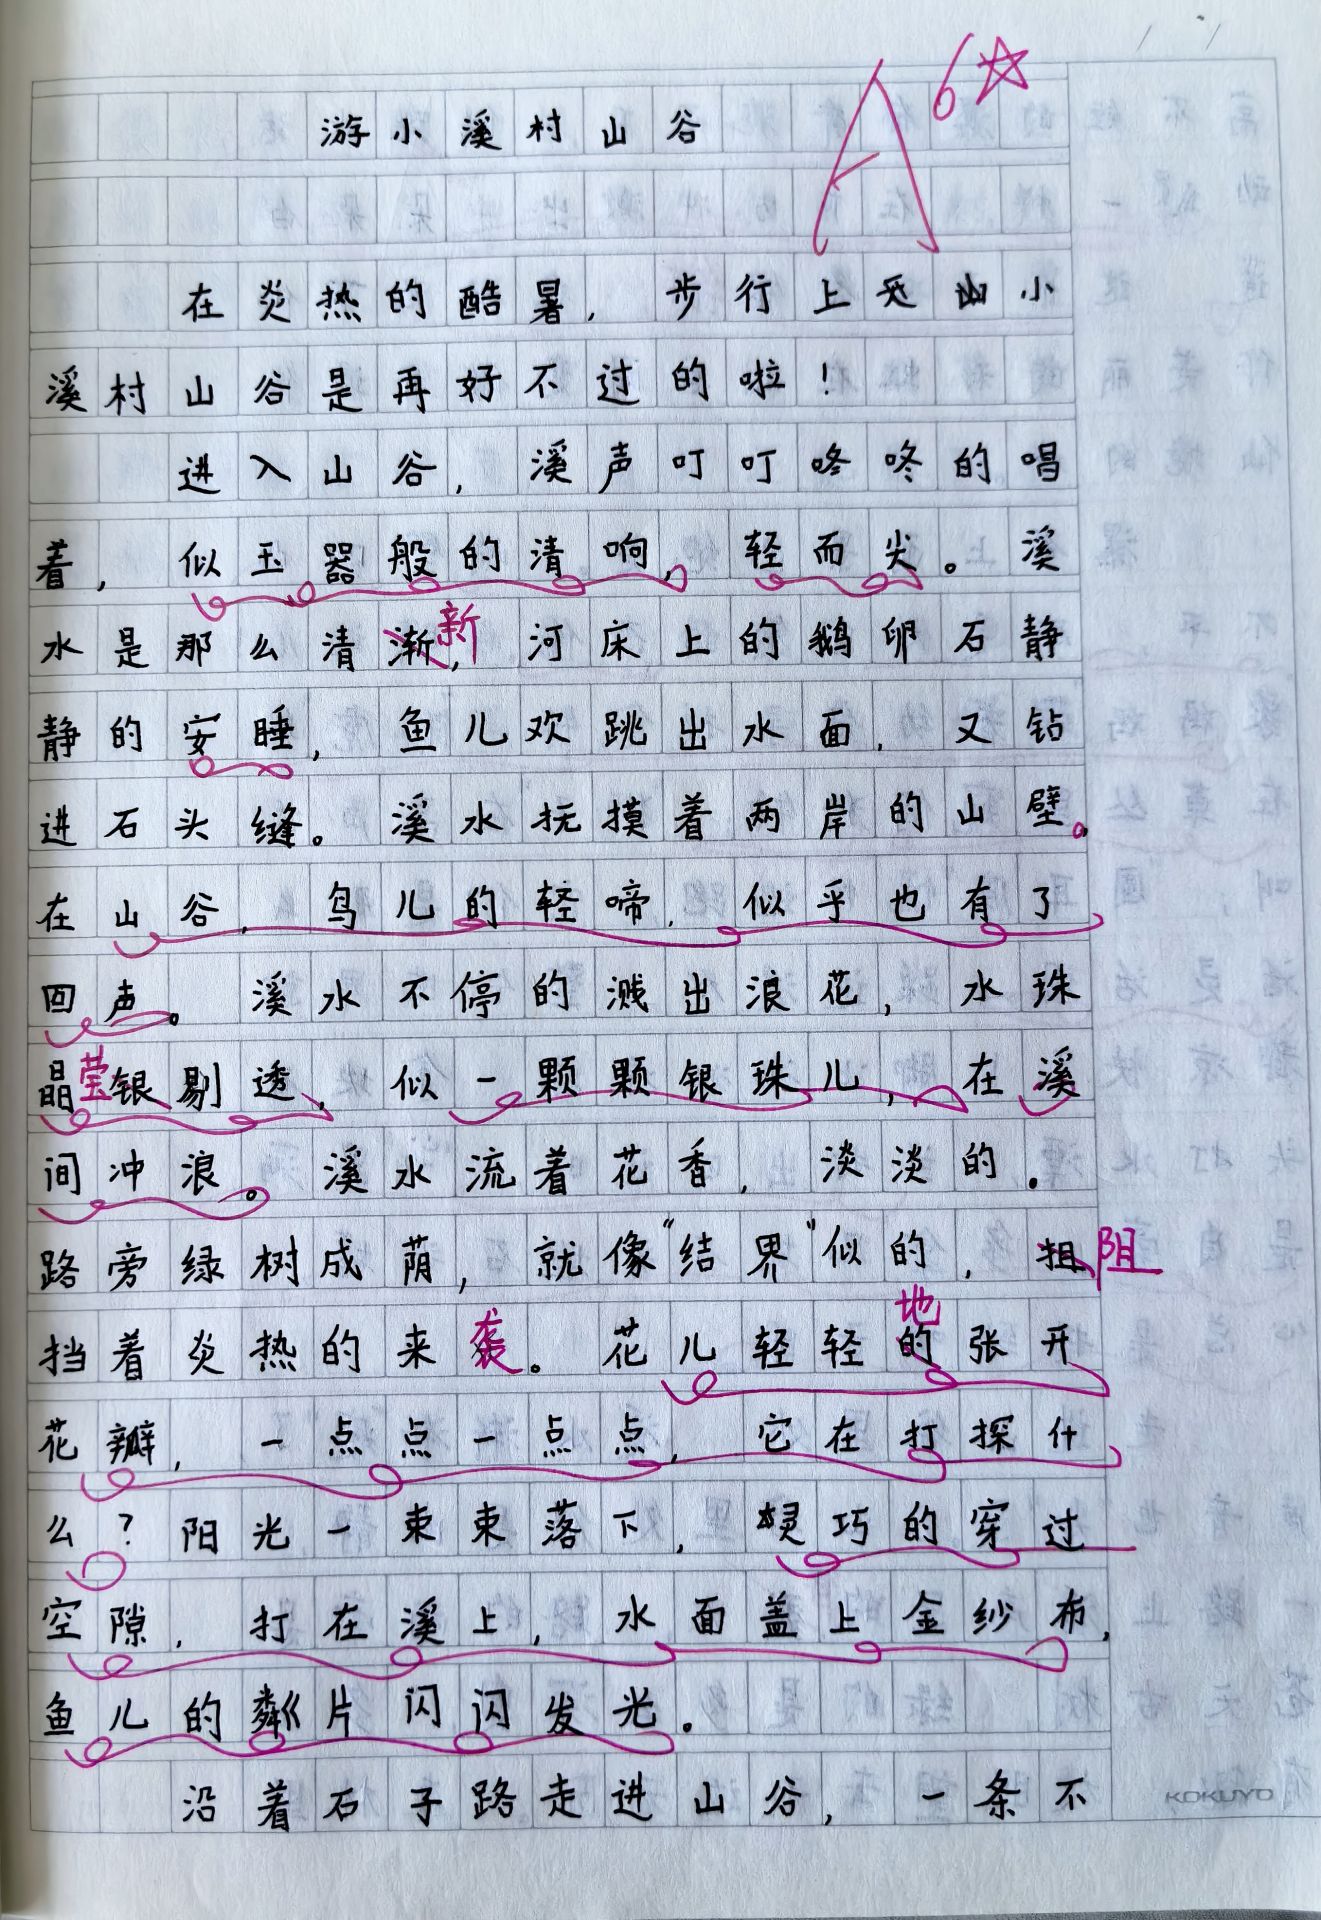 A 6☆
游小溪村山谷
在炎热的酷暑，步行上天山小
溪村山谷是再好不过的啦！
进入山谷，溪声叮叮咚咚的唱
着，似玉器般的清响，轻而尖。溪
水是那么清渐新，河床上的鹅卵石静
静的安睡，鱼儿欢跳出水面，又钻
进石头缝。溪水抚摸着两岸的山壁。
在山谷，鸟儿的轻啼，似乎也有了
回声。溪水不停的溅出浪花，水珠
晶莹银剔透，似一颗颗银珠儿，在溪
间冲浪。溪水流着花香，淡淡的。
路旁绿树成荫，就像“结界”似的，狙阻
挡着炎热的来袭。花儿轻轻的地张开
花瓣，一点点一点点，它在打探什
么？阳光一束束落下，灵巧的穿过
空隙，打在溪上，水面盖上金纱布，
鱼儿的片闪闪发光。
沿着石子路走进山谷，一条不
KOKUYO